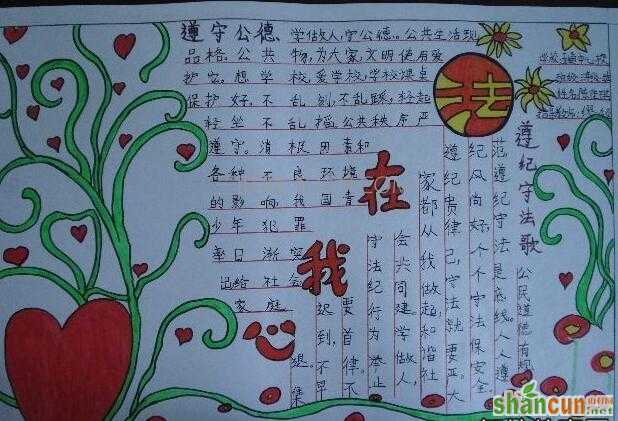 遵守公德
学做人,守公德。公共生活现
品格。公共物,为大家,文明使用爱
护它。想学校,爱学校,学校课桌
保护好,不乱刻,不乱踩,轻起
轻坐不乱摇。公共秩序严
遵守。消极因素和
各种不良环境
的影响我国青
少年犯罪
率日渐突
出给社会
家庭
法
在
我
心
遵纪守法歌
公民道德有规
范,遵纪守法是底线。人人遵
纪风尚好,个个守法保安全。
遵纪贵律己,守法就要严。大
家都从我做起,和谐社
会共同建。学做人,
守法纪,行为举止
要首律。不
迟到,不早
退。集
shancun
.net